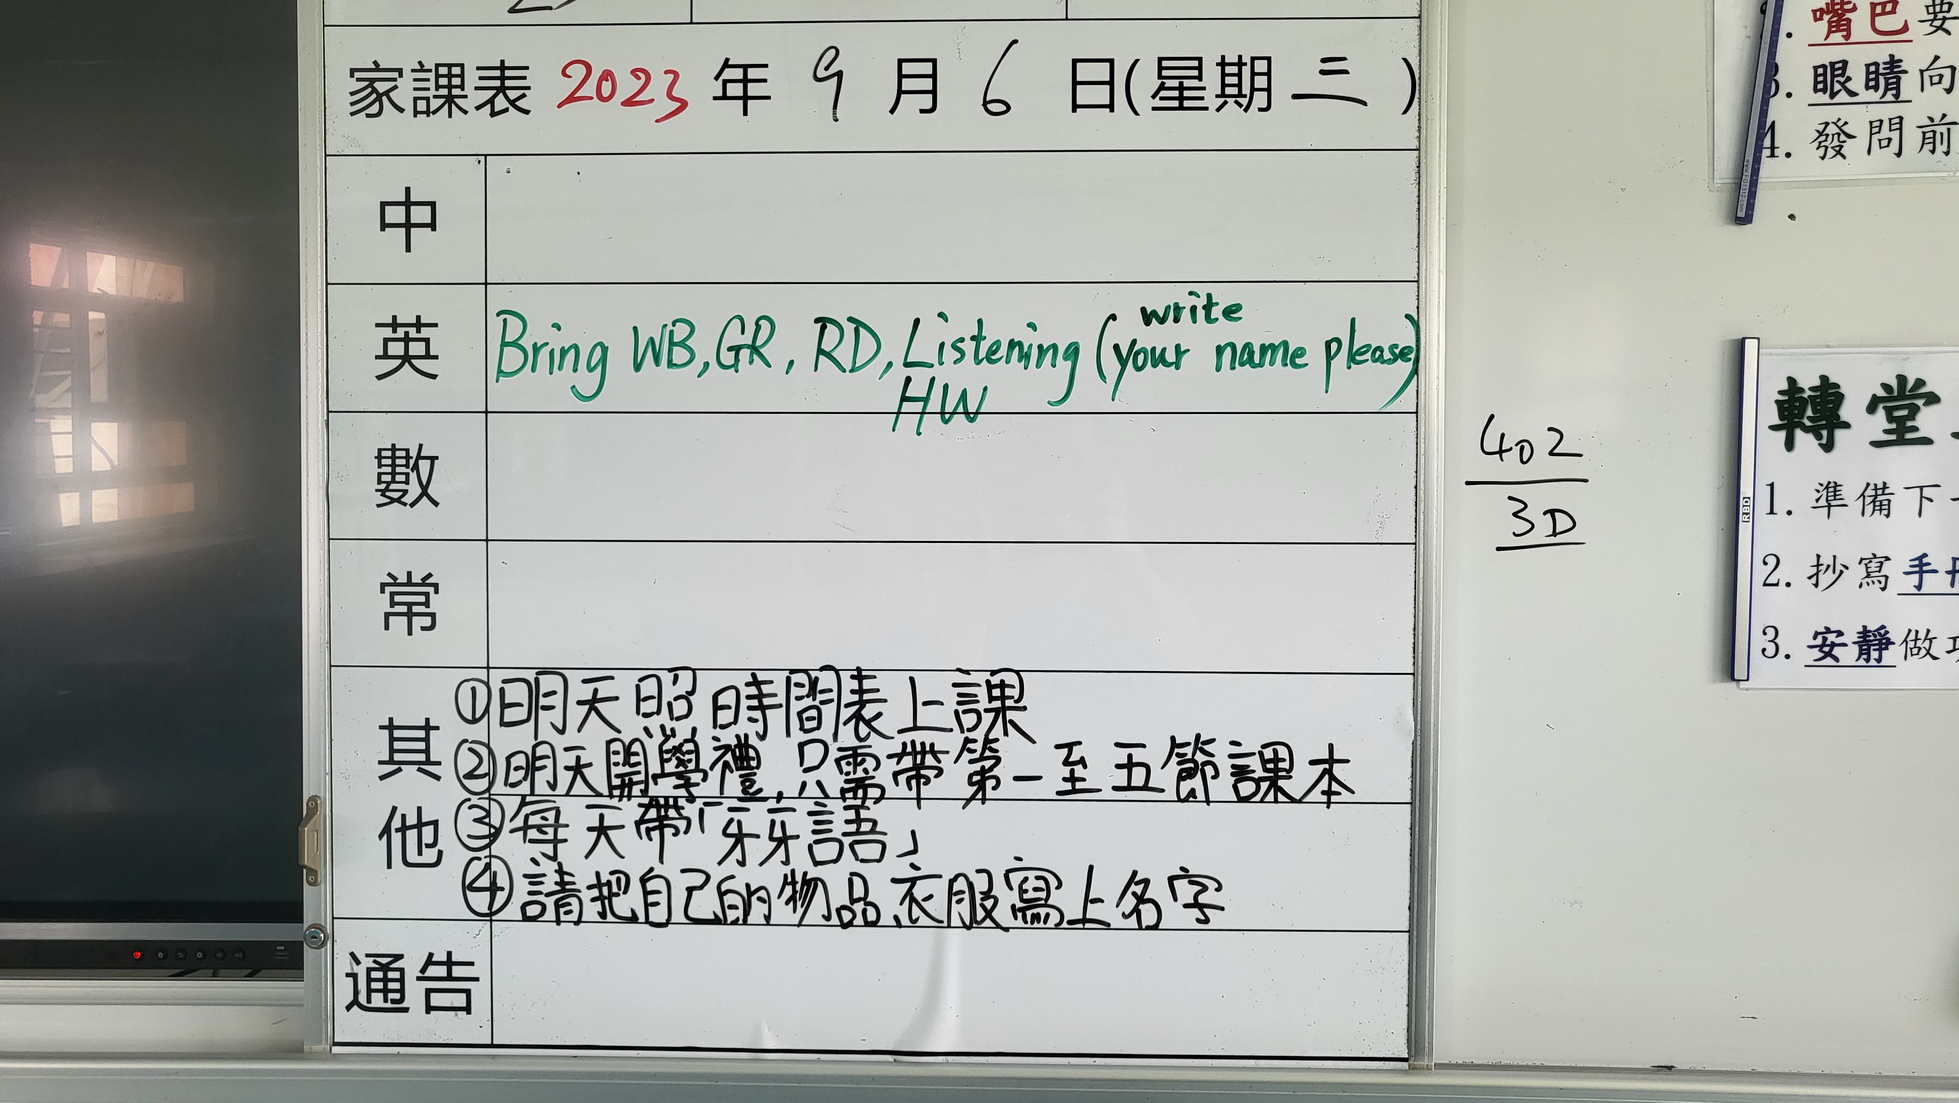 家課表 2023 年 9 月 6 日(星期 三 )
中
英 Bring WB, GR, RD, Listening (write your name please)
HW
數
常
其他
①明天照時間表上課
②明天開學禮,只需帶第一至五節課本
③每天帶「牙牙語」
④請把自己的物品、衣服寫上名字
通告
402
3D
嘴巴要
3. 眼睛向
4. 發問前
轉堂
1. 準備下
2. 抄寫手冊
3. 安靜做